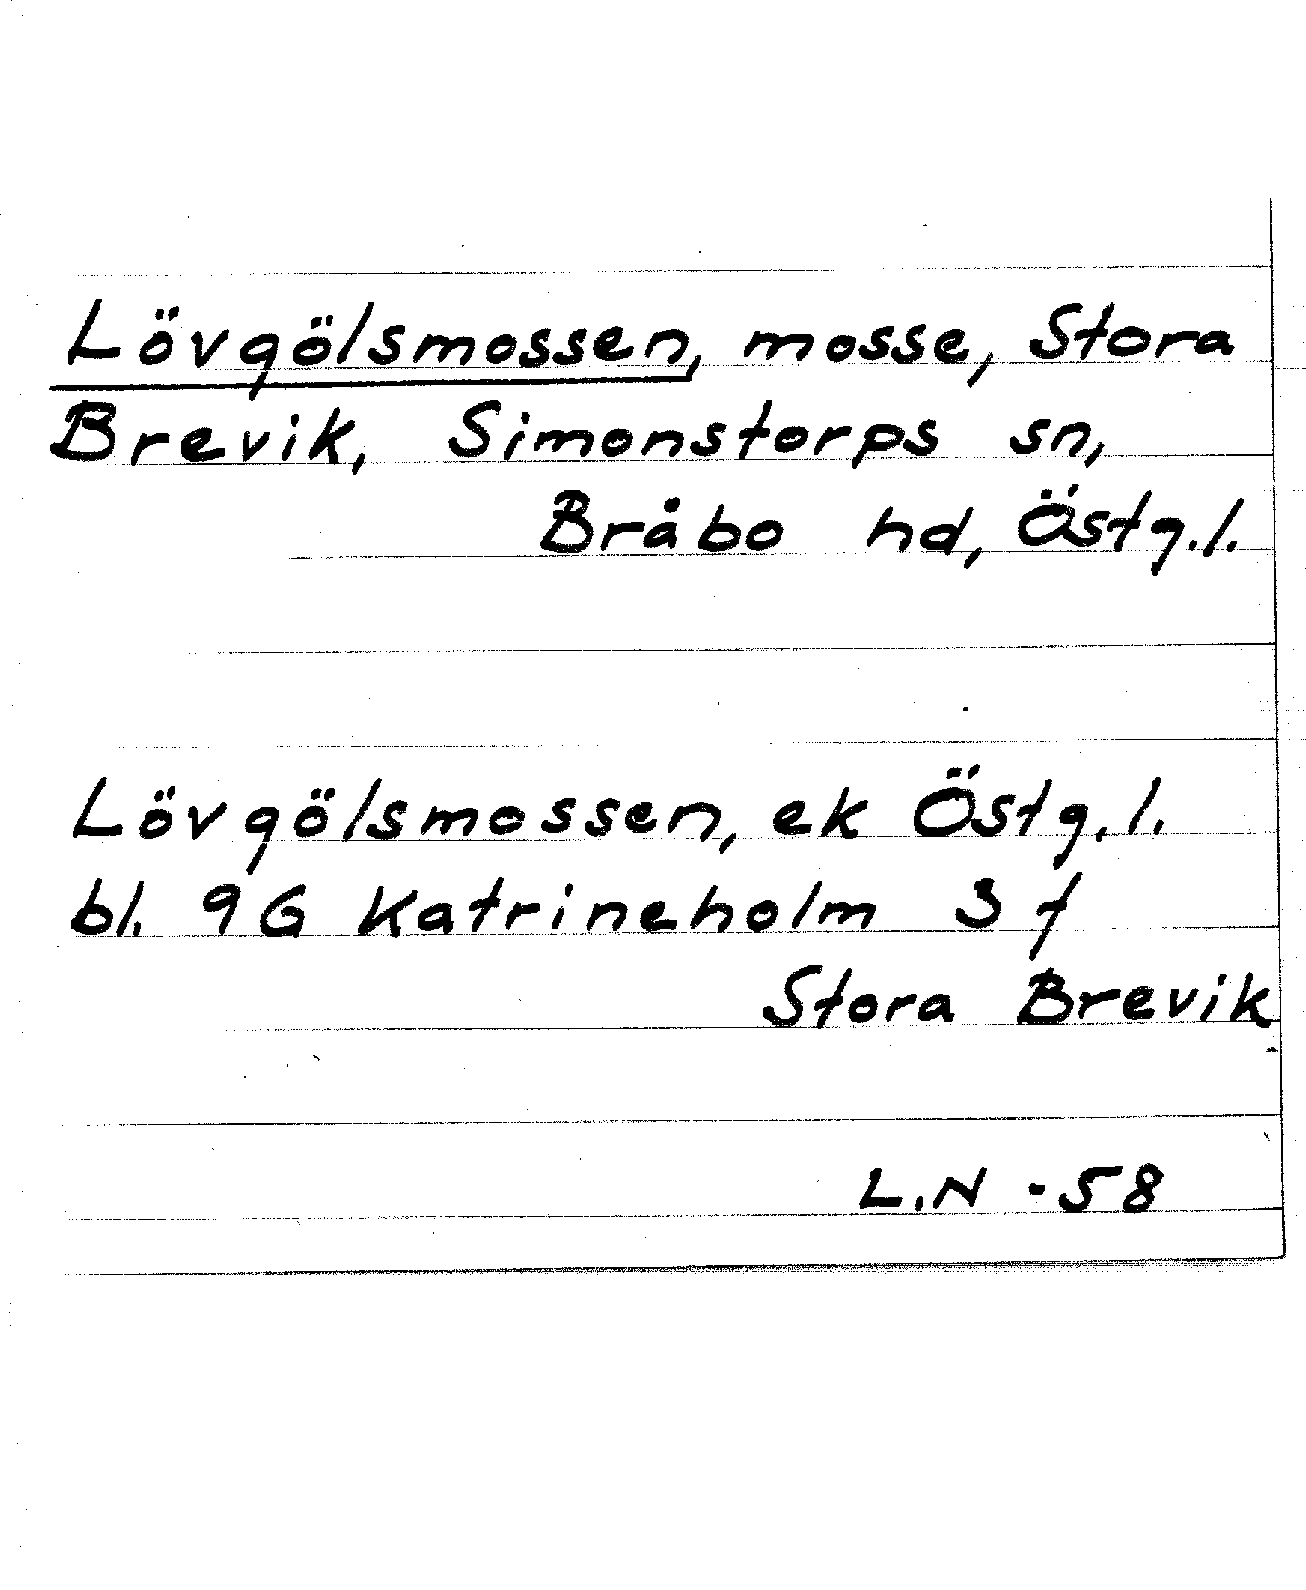 Lövgölsmossen, mosse, Stora
Brevik, Simonstorps sn,
Bråbo hd, Östg.l.
Lövgölsmossen, ek Östg.l.
bl. 9G Katrineholm 3f
Stora Brevik
L.N -58